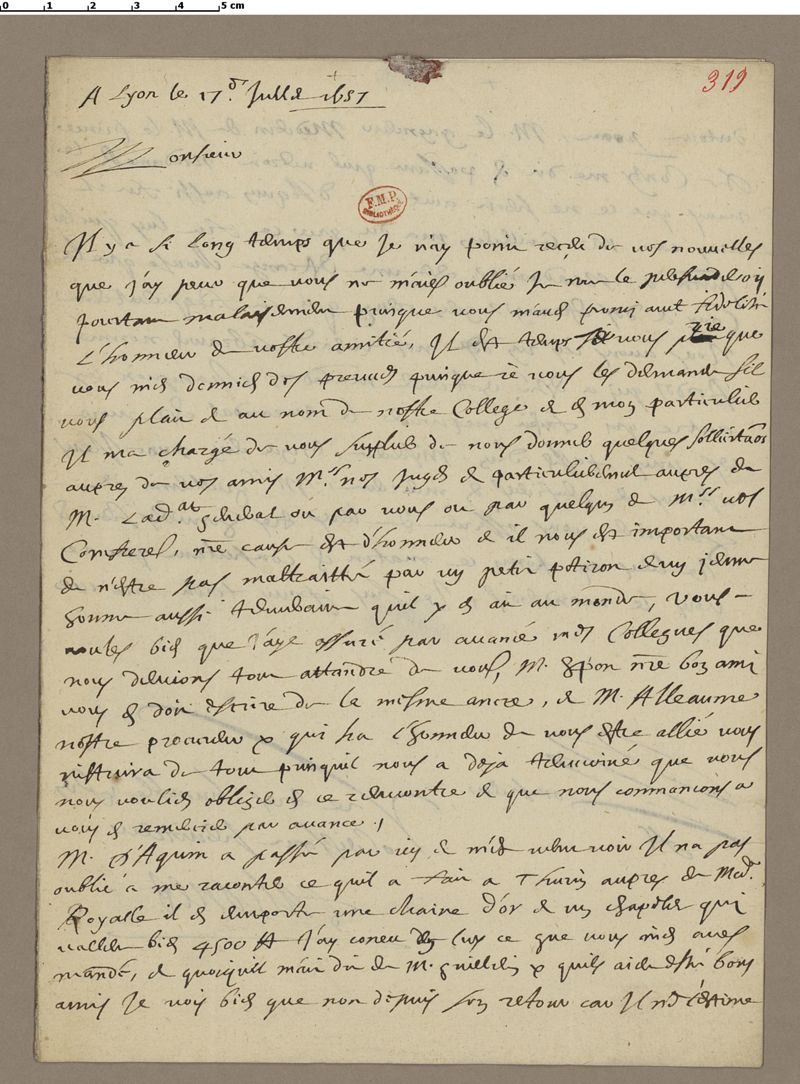 0 1 2 3 4 5 cm
319
A Lyon le 17.e Juillé 1657
Monsieur
F.M.P.
BIBLIOTHÈQUE
Il y a si long temps que je n'ay poin receu de vos nouvelles
que j'ay peur que vous ne m'aies oublié Je ne le
pourtant malaisement puisque vous m'avés promi avec fidelité
l'honneur de vostre amitié, Il est temps que
vous m'en donniés des preuves puisque je vous les demande sil
vous plait & au nom de nostre College & en mon particulier
Il m'a chargé de vous supplier de nous donner quelques sollicitaons
aupres de vos amis Mrs nos Juges & particulierement aupres de
M. L'ad.at general ou par vous ou par quelqun de Mrs vos
Confreres, nre cause est d'honneur & il nous est important
de n'estre pas maltraitté par un petit potiron & un jeune
homme aussi temeraire quil y en ait au monde, Vous
voules bien que j'aye assuré par avance mes Collegues que
nous devions tout attandre de vous, M. Spon nre bon ami
vous en doit escrire de la mesme ancre, & M. Alleaume
nostre procureur & qui ha l'honneur de vous estre allié vous
instruira de tout puisquil nous a deja temoiné que vous
nous vouliés obliger en ce rencontre & que nous commancions a
vous en remercier par avance.
M. D'Aquin a passé par icy & m'est venu voir Il n'a pas
oublié a me raconter ce quil a fait a Thurin aupres de Mad.e
Royalle il en emporte une chaine d'or & un chapelet qui
vallent bien 4500 tt J'ay conneu en luy ce que vous m'en aves
mandé, & quoiquil m'ait dit de M. Guillemin & quils aient esté bons
amis Je vois bien que non depuis son retour car Il ne l'estime